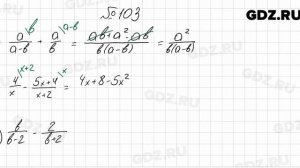 №103
GDZ.RU
a/(a-b) \b + a/b \a-b = (ab+a²-ab)/(b(a-b)) = a²/(b(a-b))
4/x \x+2 - (5x+4)/(x+2) \x = 4x+8-5x²
) b/(b-2) - 2/(b+2)
GDZ.RU